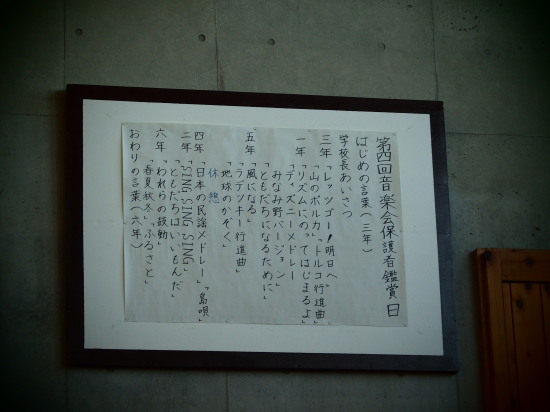 第四回音楽会保護者鑑賞日
はじめの言葉(三年)
学校長あいさつ
三年「レッツゴー!明日へ」
「山のポルカ」「トルコ行進曲」
一年「リズムにのってはじまるよ」
「ディズニーメドレー
みなみ野バージョン」
「ともだちになるために」
五年「風になる」
「ラデツキー行進曲」
「地球のかぞく」
休憩
四年「日本の民謡メドレー」「島唄」
二年「SING SING SING」
「ともだちはいいもんだ」
六年「われらの鼓動」
「春夏秋冬」「ふるさと」
おわりの言葉(六年)